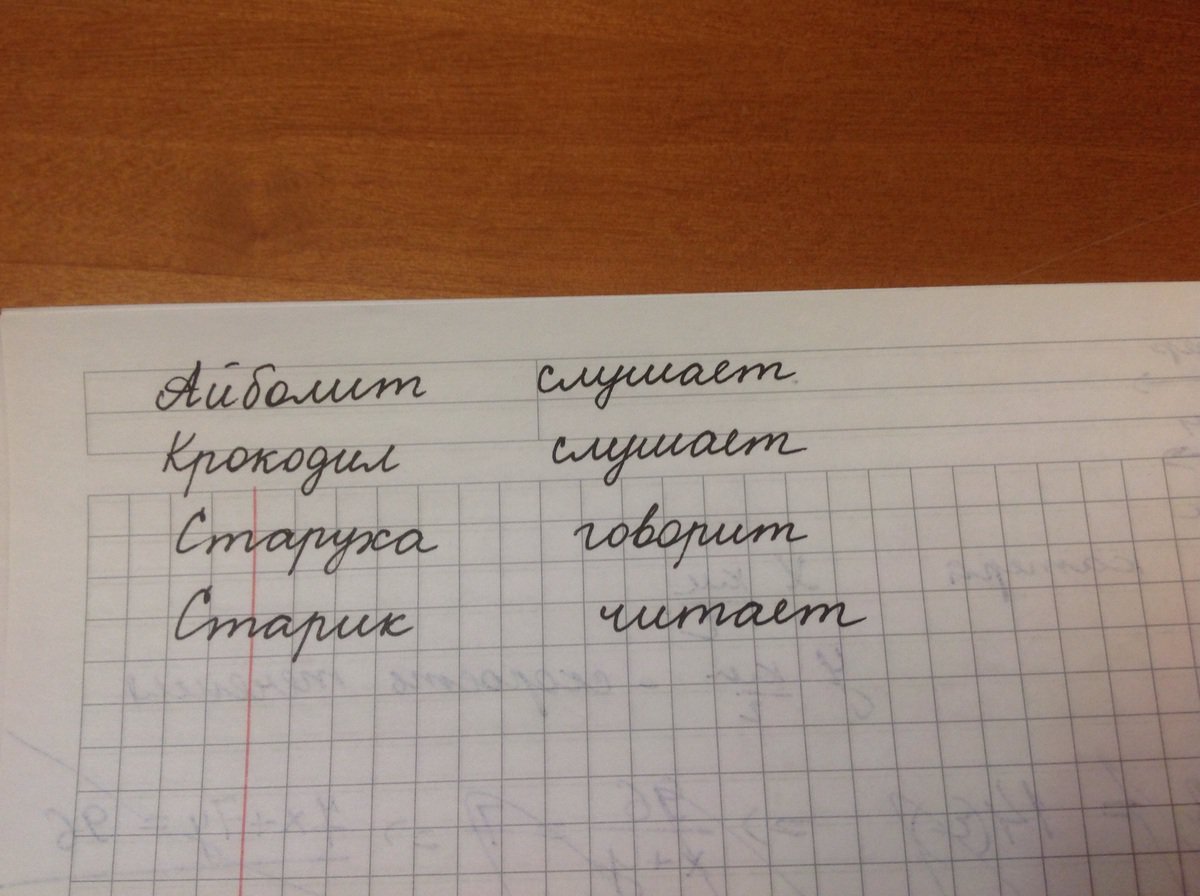 Айболит слушает
Крокодил слушает
Старуха говорит
Старик читает